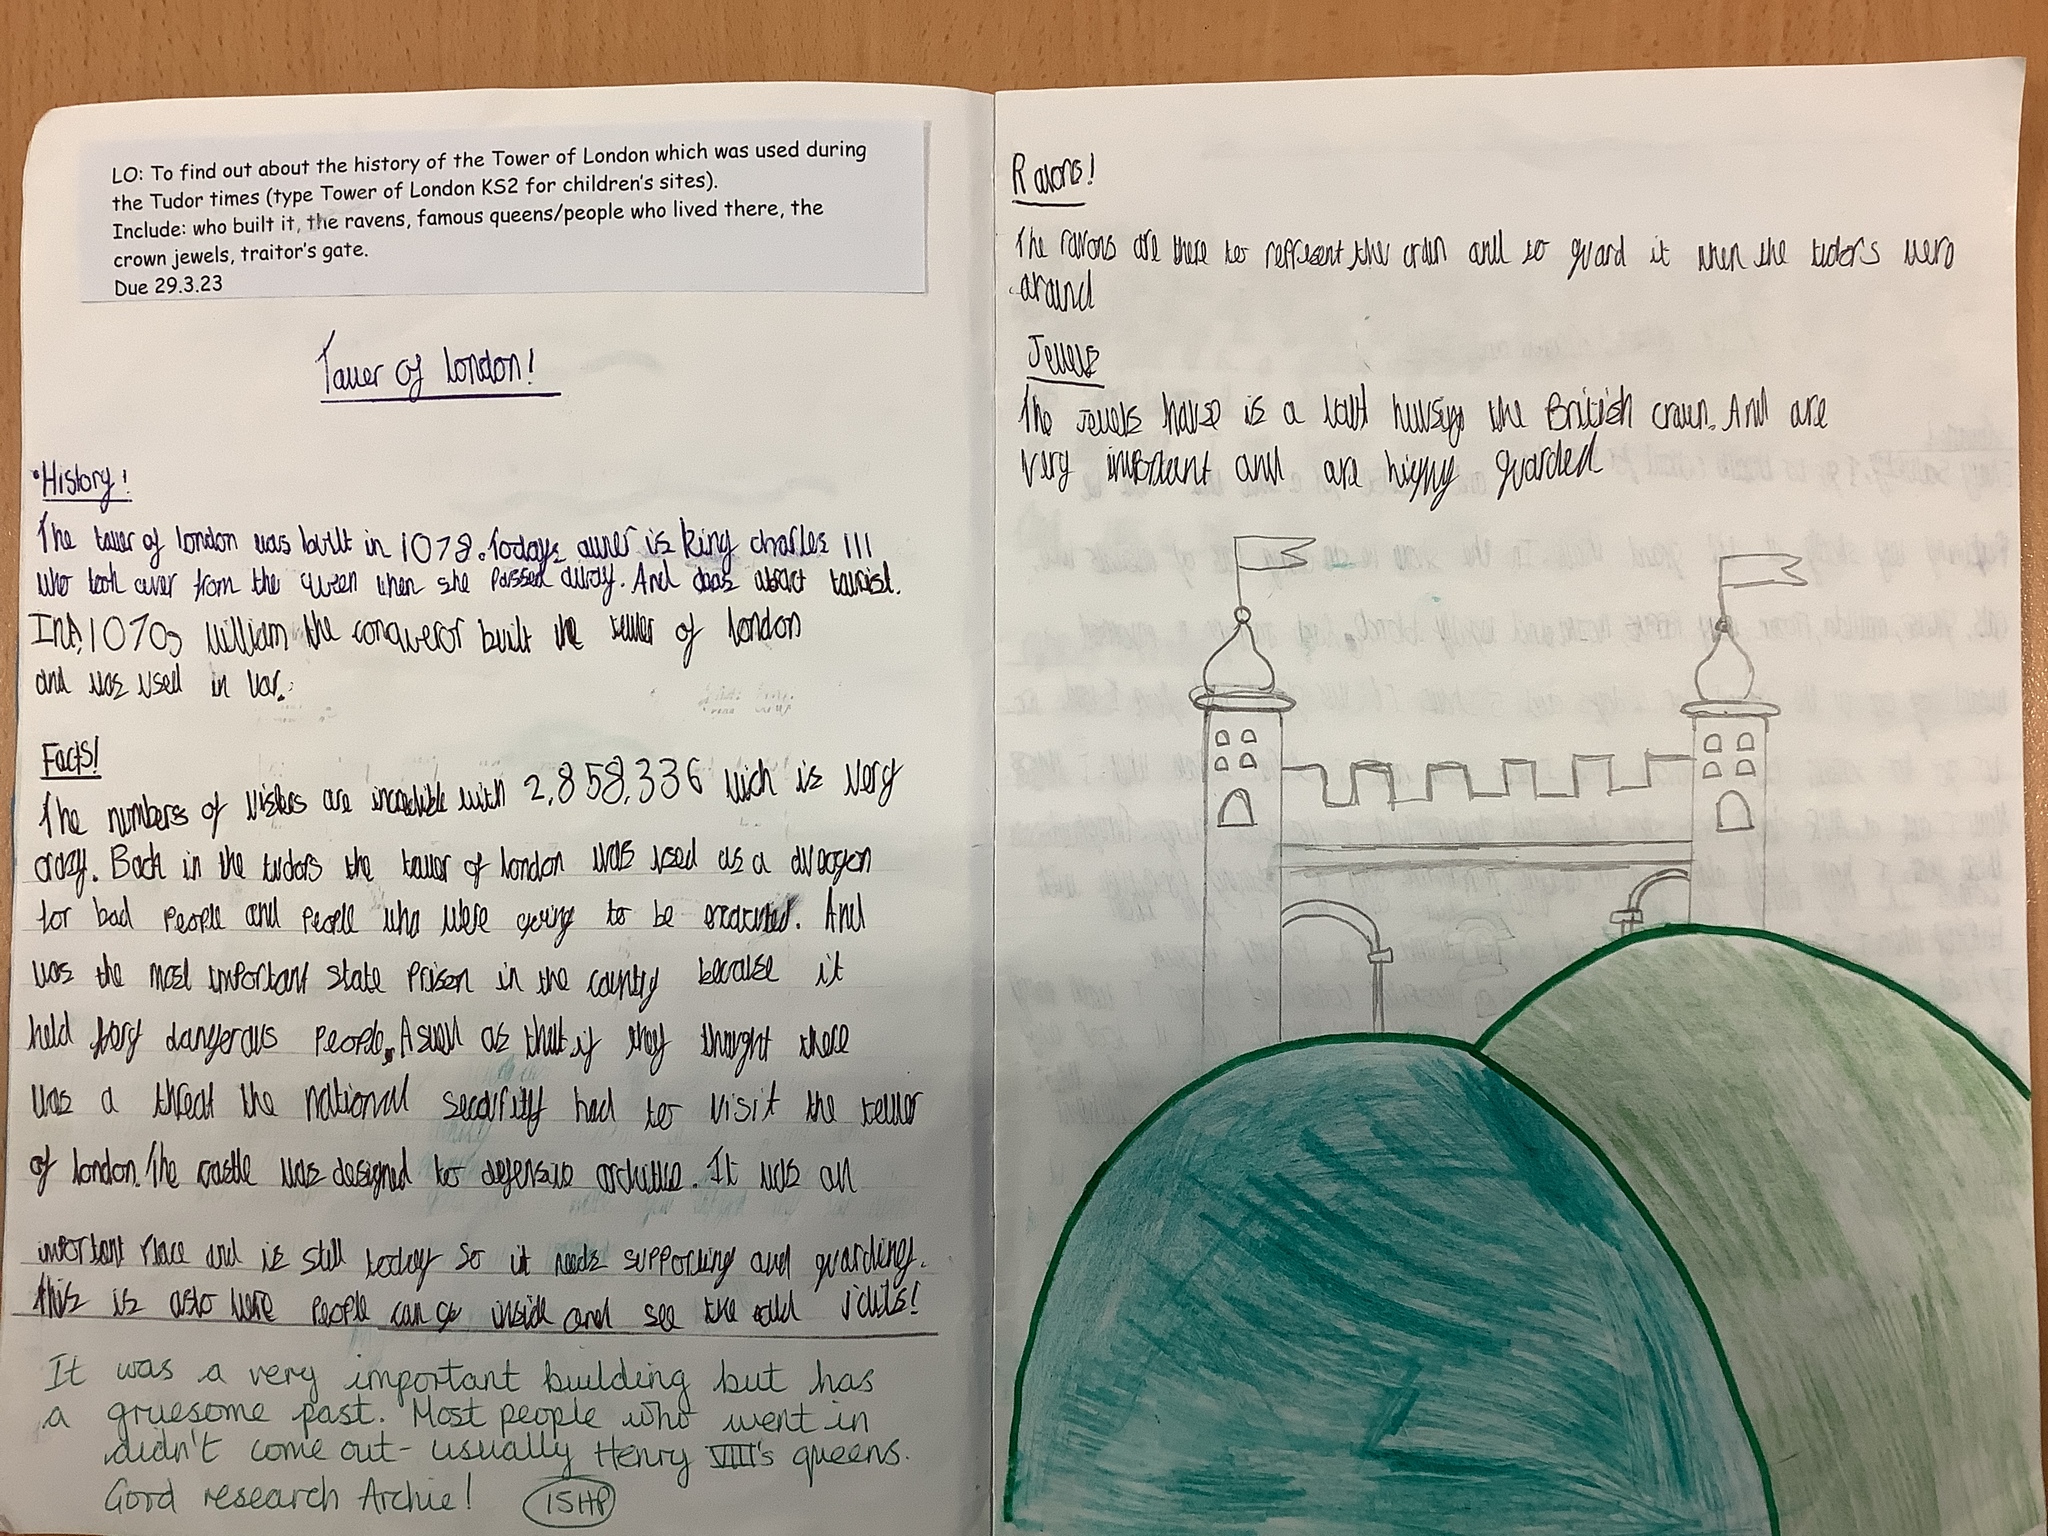 LO: To find out about the history of the Tower of London which was used during
the Tudor times (type Tower of London KS2 for children's sites).
Include: who built it, the ravens, famous queens/people who lived there, the
crown jewels, traitor's gate.
Due 29.3.23
Tauer of London!
History!
The tauer of london was built in 1078. Todays owner is king charles III
who took over from the queen when she passed away. And does atract tourist.
In 1070s William the conqueror built the tower of london
and was used in war.
Facts!
The numbers of visiters are incredible with 2,858,336 wich is very
crazy. Back in the tudors the tauer of london was used as a
for bad people and people who were going to be executed. And
was the most important state prison in the country because it
held very dangerous people. Aswell as that if they thaught there
was a threat the national security had to visit the tower
of london. The castle was designed to defensive. It was an
important place and is still today so it needs supporting and guarding.
this is also were people can go inside and see the!
It was a very important building but has
a gruesome past. Most people who went in
didn't come out - usually Henry VIII's queens.
Good research Archie! 15HP
Ravons!
The ravons are there to reppresent the crown and to guard it when the tudors were
around
Jewels
The jewels house is a valt the British crown. And are
very important and are highy guarded